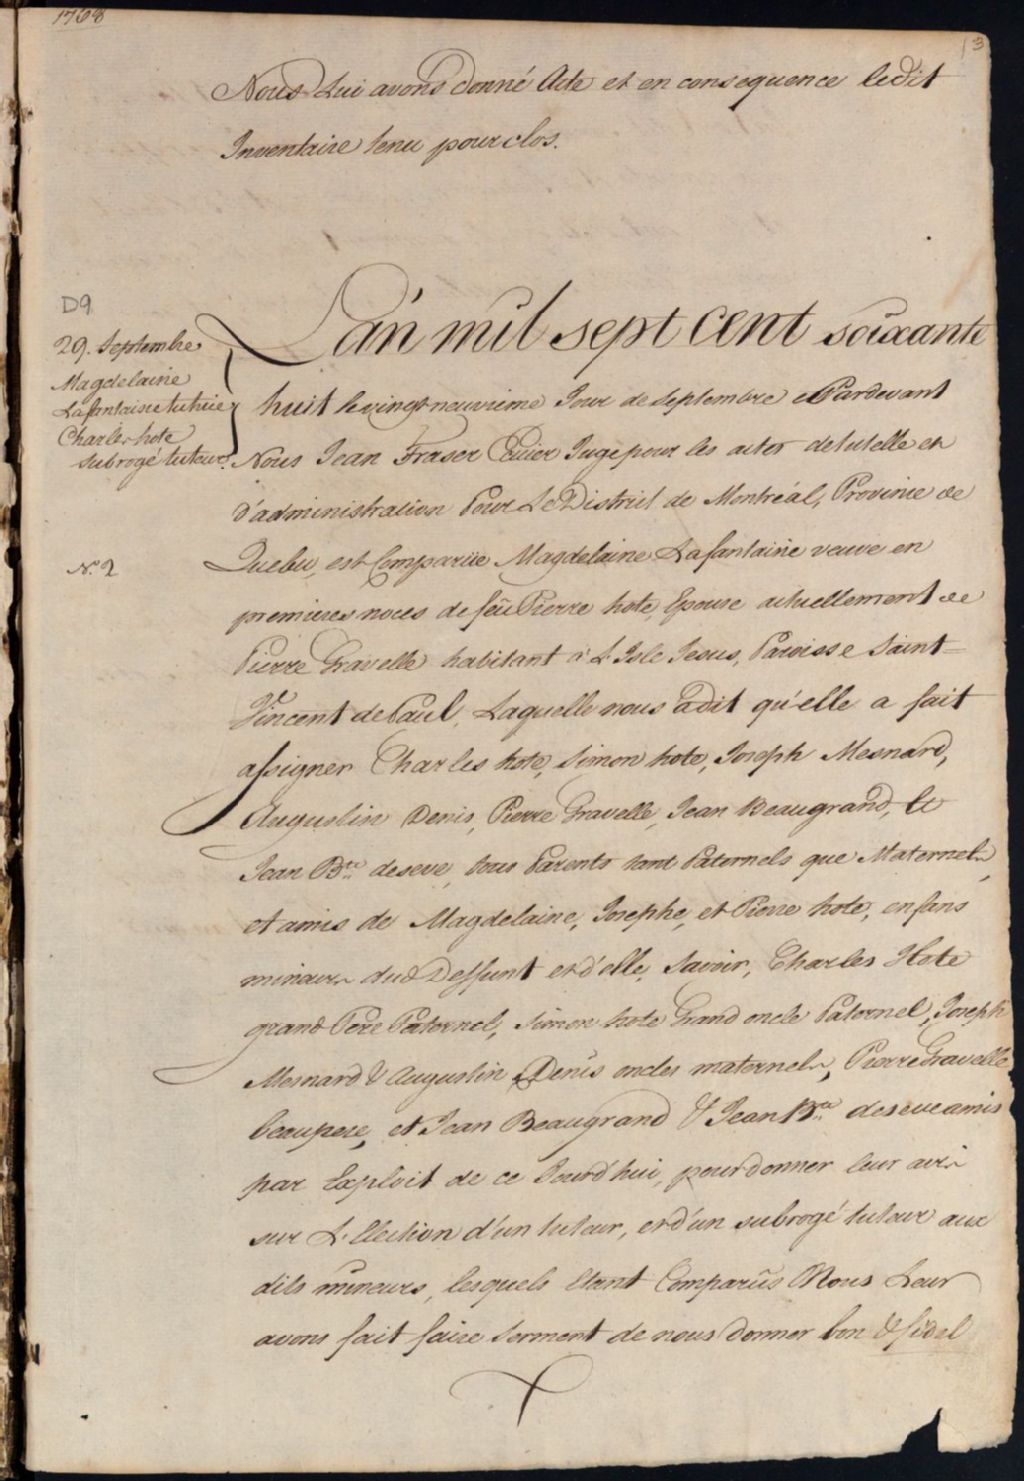 1768
3
Nous Lui avons donné Acte et en consequence ledit
Inventaire tenu pour clos.
D9
29. Septembre
Magdelaine
Lafantaisie tutrice
Charles hote
subrogé tuteur.
L'an mil sept cent soixante
huit le vingt neuvieme Jour de Septembre Pardevant
Nous Jean Fraser Ecuier Juge pour les actes de tutelle et
d'administration Pour Le District de Montréal, Province de
N.o 2
Quebec, est Comparüe Magdelaine Lafantaisie veuve en
premieres noces de feu Pierre hote, Epouse actuellement de
Pierre Gravelle habitant à L'Isle Jesus, Paroisse Saint-
Vincent de Paul, Laquelle nous a dit qu'elle a fait
assigner Charles hote, Simon hote, Joseph Mesnard,
Augustin Denis, Pierre Gravelle, Jean Beaugrand, &
Jean Bte deseve, tous Parents tant Paternels que Maternels,
et amis de Magdelaine, Josephe, et Pierre hote, enfans
mineurs dud. Deffunt et d'elle, Savoir, Charles Hote
grand Pere Paternel, Simon hote Grand oncle Paternel, Joseph
Mesnard & Augustin Denis oncles maternels, Pierre Gravelle
beaupere, et Jean Beaugrand & Jean Bte deseve amis
par Exploit de ce Jourd'hui, pour donner leur avis
sur L'Election d'un tuteur, et d'un subrogé tuteur aux
dits mineurs, lesquels Etant Comparûs Nous Leur
avons fait faire Serment de nous donner bon & fidel